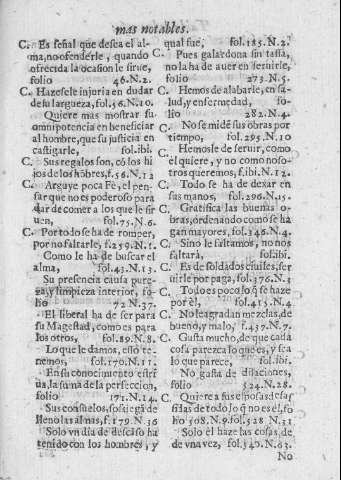 mas notables.
C. Es señal que desea el al-
ma, no ofenderle, quando
ofrecida la ocasion le sirue,
folio 46.N.2.
C. Hazesele injuria en dudar
de su largueza, fol.56.N.10.
Quiere mas mostrar su
omnipotencia en beneficiar
al hombre, que su justicia en
castigarle, fol.ibi.
C. Sus regalos son, cõ los hi
jos de los hõbres, f.56.N.12
C. Arguye poca Fè, el pen-
sar que no es poderoso para
dar de comer a los que le sir
uen, fol.75.N.6.
C. Por todo se ha de romper,
por no faltarle, f.259.N.1.
Como le ha de buscar el
alma, fol.43.N.13.
Su presencia causa pure-
za, y limpieza interior, fo-
lio 72.N.37.
El liberal ha de ser para
su Magestad, como es para
los otros, fol.89.N.8.
Lo que le damos, esso te-
nemos, fol.170.N.11.
En su conocimiento estri
ua, la suma de la perfeccion,
folio 171.N.14.
Sus consuelos, sosiega de
lleno las almas, f.179.N.36
Solo vn dia de descãso ha
tenido con los hombres, y
qual fue, fol.185.N.2.
C. Pues galardona sin tassa,
no la ha de auer en seruirle,
folio 273.N.5.
C. Hemos de alabarle, en sa-
lud, y enfermedad, fo-
lio 282.N.4.
C. No se midẽ sus obras por
tiempo, fol.295.N.10
C. Hemosle de seruir, como
èl quiere, y no como noso-
tros queremos, f.ibi.N.12.
C. Todo se ha de dexar en
sus manos, fol.296.N.15.
C. Gratifica las buenas o-
bras, ordenando como se ha
gan mayores, fol.346.N.4.
C. Sino le faltamos, no nos
faltarà, fol.ibi.
C. Es de soldados ciuiles, ser
uirle por paga, fol.376.N.3
C. Todo es poco lo q̃ se haze
por èl, fol.415.N.4.
C. No le agradan mezclas, de
bueno, y malo, f.437.N.7.
C. Gusta mucho, de que cada
cosa parezca lo que es, y sea
lo que parece, fol.ibi.
No gusta de dilaciones,
folio 524.N.28.
C. Quiere a sus esposas desas
sidas de todo lo q̃ no es èl, fo
lio 508.N.9. fol.528 N.31
C. Solo èl haze las cosas, de
de vna vez, fol.540.N.63.
No